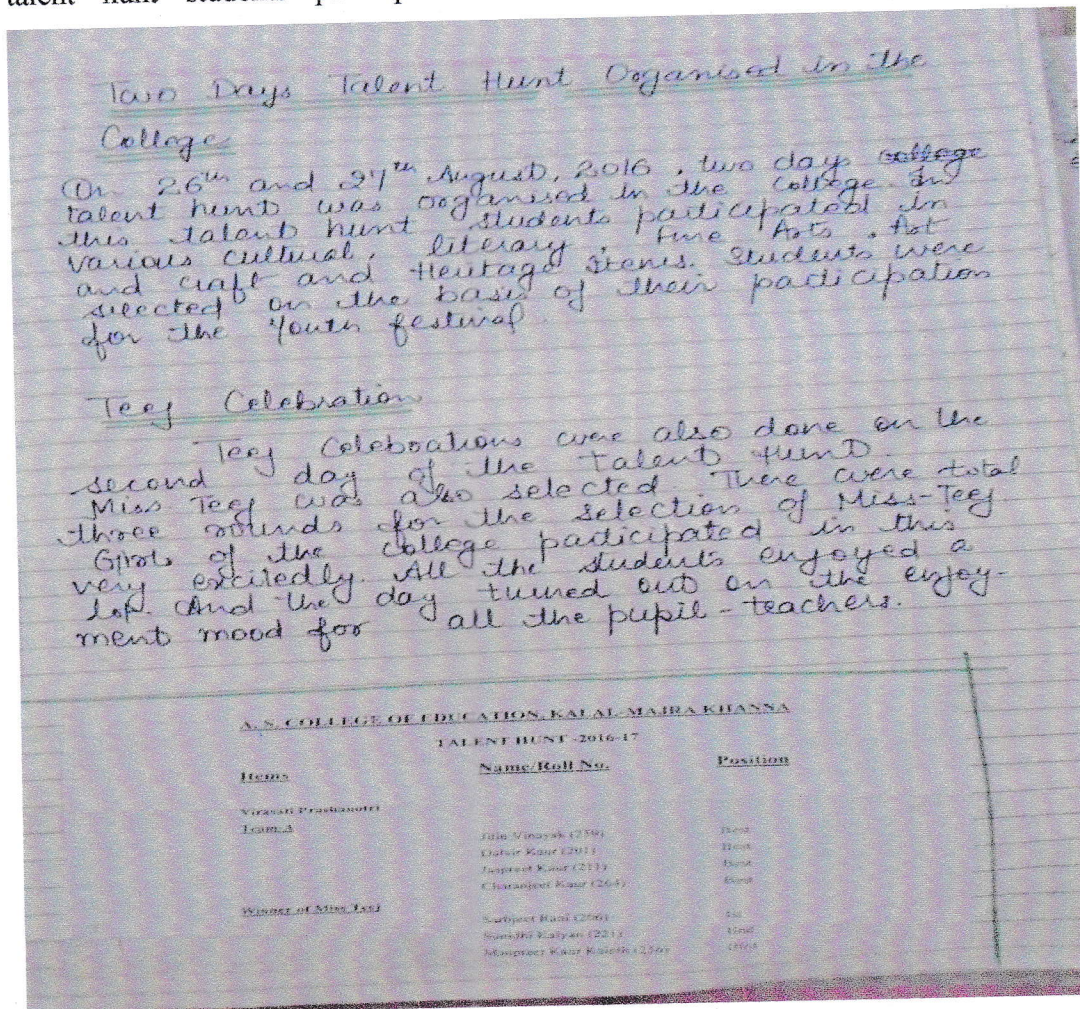 talent hunt students
Two Days Talent Hunt Organised in the
College
On 26th and 27th August, 2016, two days college
talent hunt was organised in the college. In
this talent hunt students participated in
various cultural, literary, Fine Arts, Art
and craft and Heritage Items. Students were
selected on the basis of their participation
for the Youth festival.
Teej Celebration
Teej Celebrations were also done on the
second day of the Talent Hunt.
Miss Teej was also selected. There were total
three rounds for the selection of Miss-Teej
Girls of the college participated in this
very excitedly. All the students enjoyed a
lot. And the day turned out on the enjoy-
ment mood for all the pupil-teachers.
A. S. COLLEGE OF EDUCATION, KALAL MAJRA KHANNA
TALENT HUNT -2016-17
Items Name/Roll No. Position
Virasati Prashanotri
Team A
Vinayak (259) Best
Kaur (201) Best
Jaspreet Kaur (211) Best
Charanjeet Kaur (264) Best
Winner of Miss Teej
Sarbjeet Rani (266) Ist
Kalyan (221) IInd
Manpreet Kaur (256)